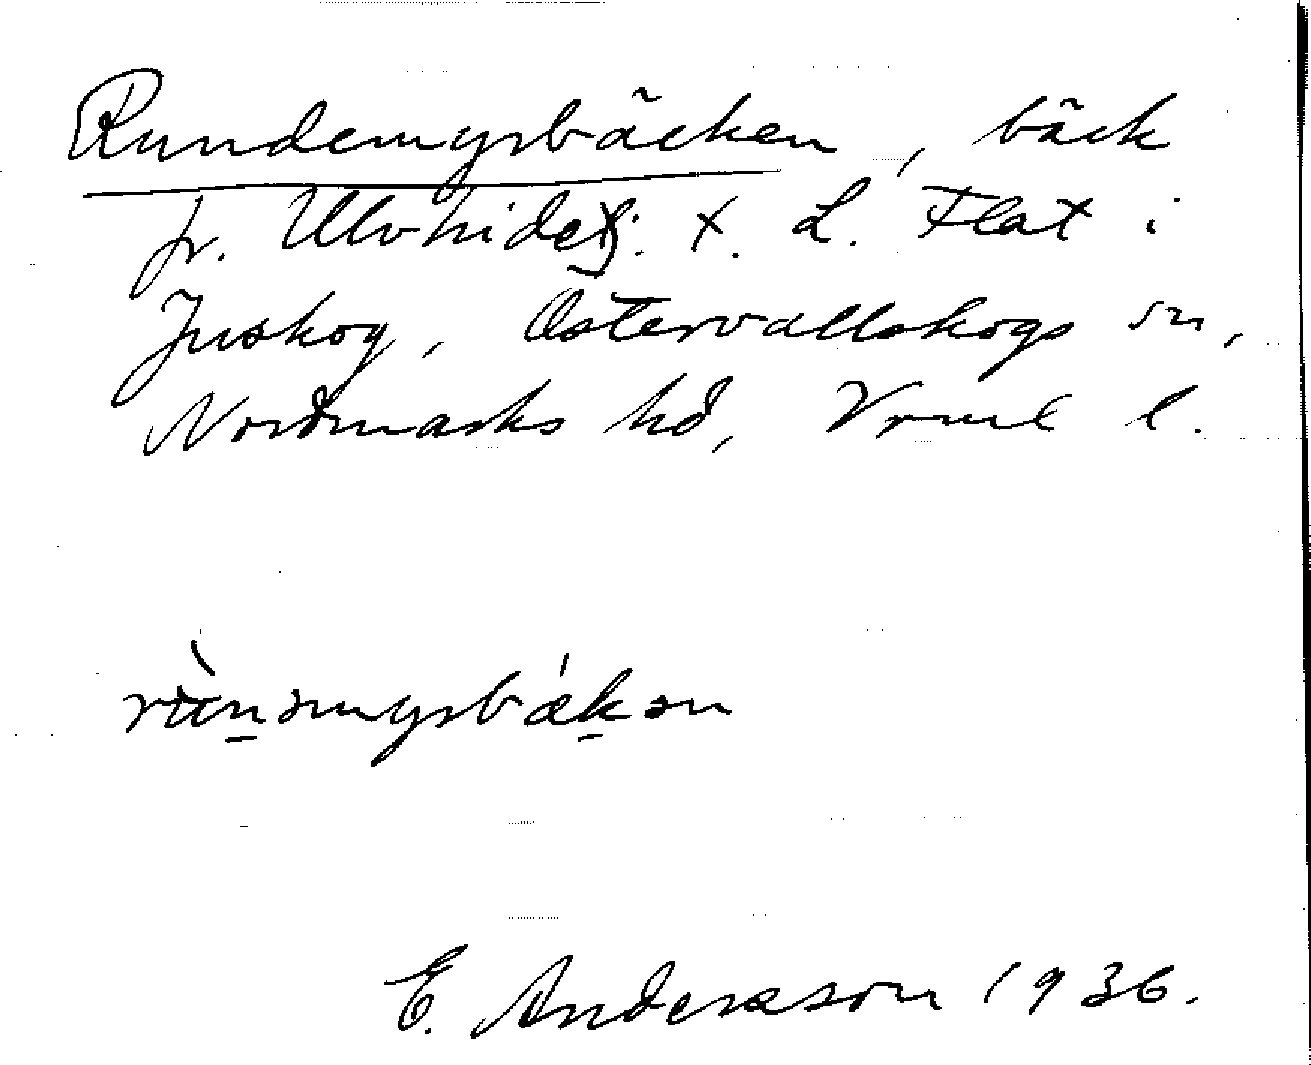 Rundemyrbäcken, bäck
fr. Ulvhidetj. t. L. Flat i
Juskog, Östervallskogs sn,
Nordmarks hd, Vrml l.
rùnəmyrbǽkən
E. Andersson 1936.